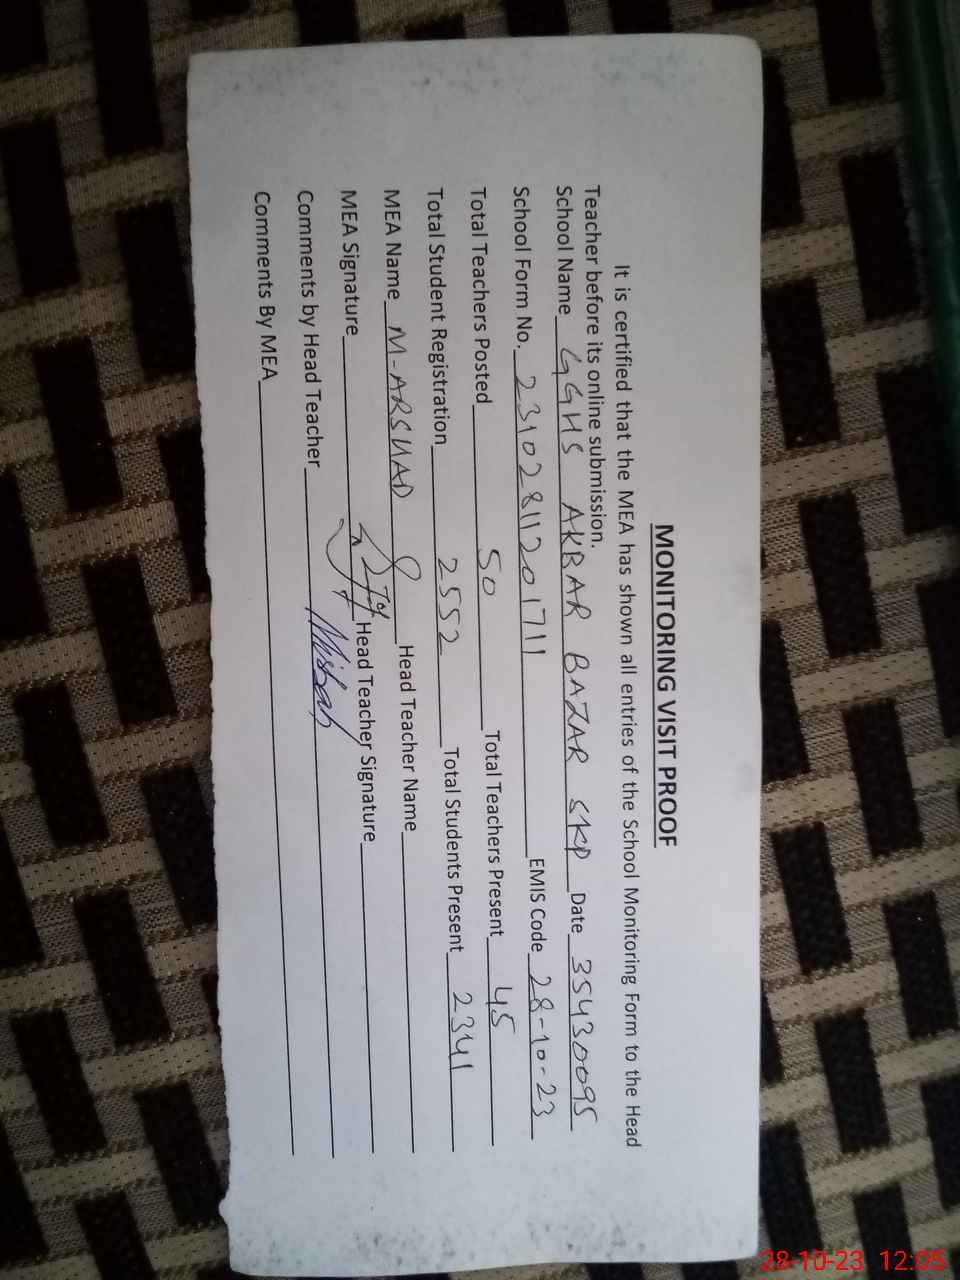 MONITORING VISIT PROOF
It is certified that the MEA has shown all entries of the School Monitoring Form to the Head
Teacher before its online submission.
School Name GGHS AKBAR BAZAR SKP Date 35430095
School Form No. 23102811201711 EMIS Code 28-10-23
Total Teachers Posted 50 Total Teachers Present 45
Total Student Registration 2552 Total Students Present 2341
MEA Name M-ARSHAD Head Teacher Name
MEA Signature Head Teacher Signature
Comments by Head Teacher Misbah
Comments By MEA
28-10-23 12:05